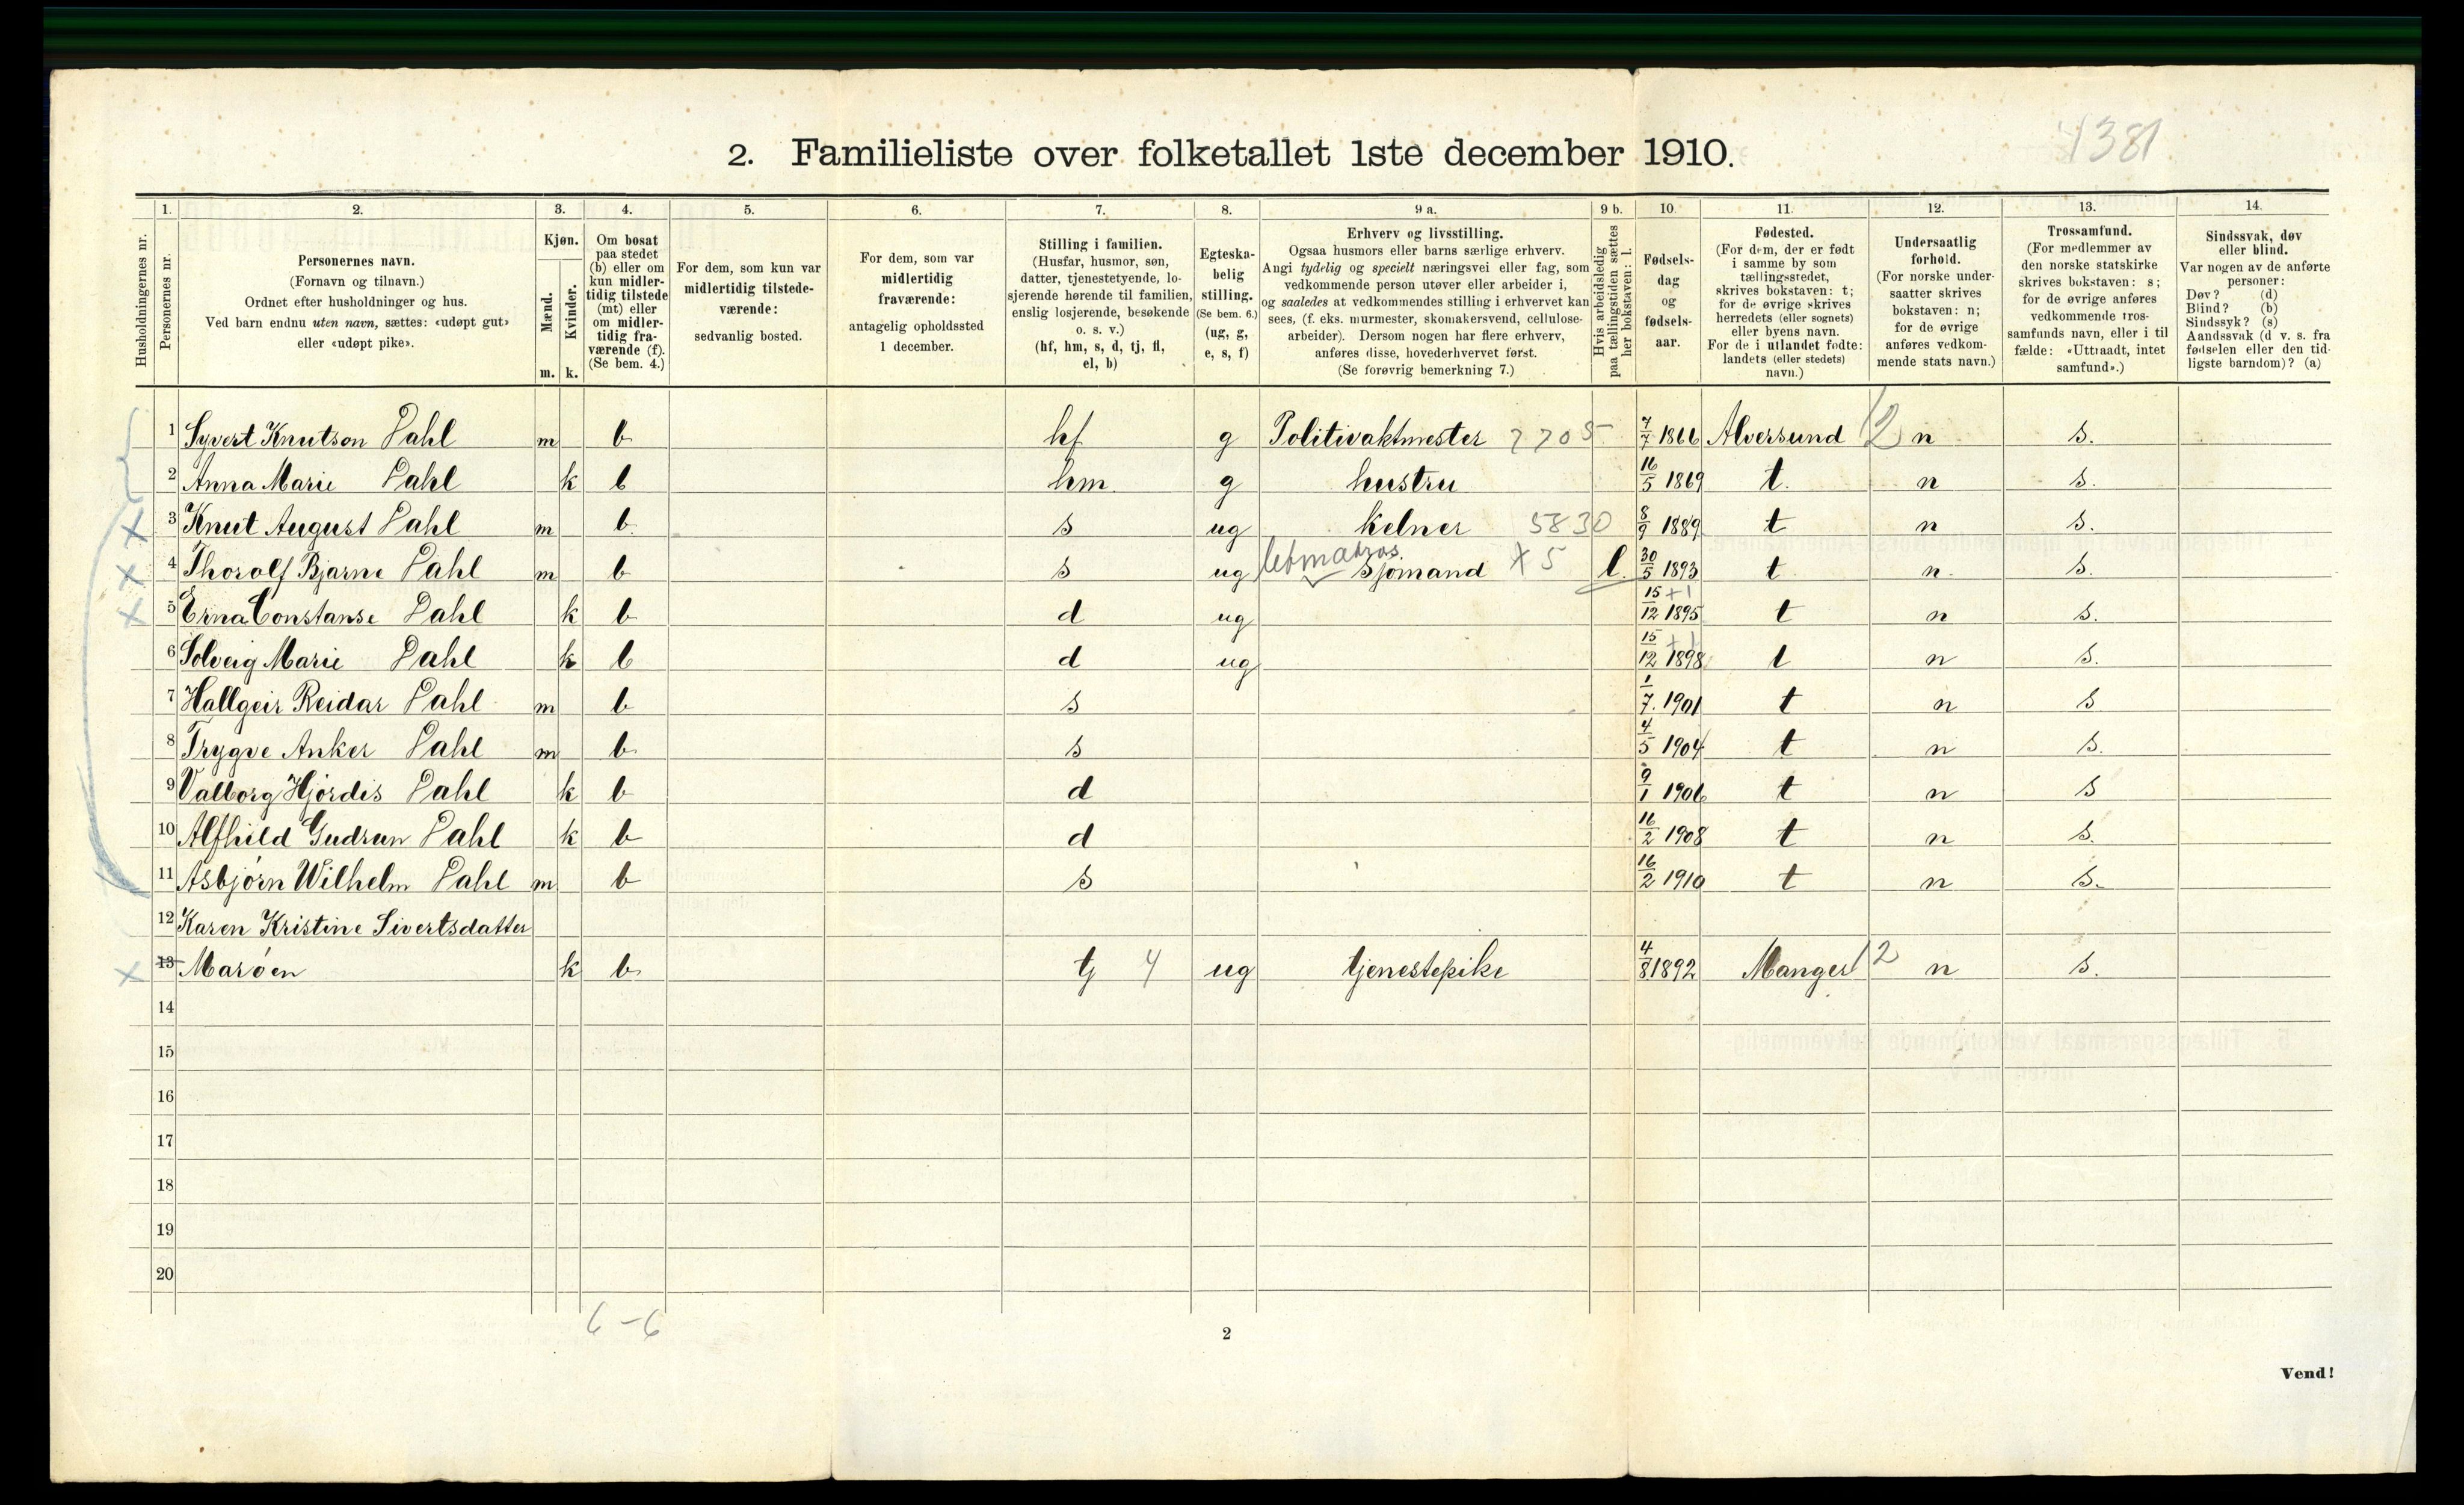 4381
2. Familieliste over folketallet 1ste december 1910.
1. 2. 3. 4. 5. 6. 7. 8. 9 a. 9 b. 10. 11. 12. 13. 14.
Husholdningernes nr.
Personernes nr.
Personernes navn.
(Fornavn og tilnavn.)
Ordnet efter husholdninger og hus.
Ved barn endnu uten navn, sættes: «udøpt gut»
eller «udøpt pike».
Kjøn.
Mænd.
Kvinder.
m. k.
Om bosat
paa stedet
(b) eller om
kun midler-
tidig tilstede
(mt) eller
om midler-
tidig fra-
værende (f).
(Se bem. 4.)
For dem, som kun var
midlertidig tilstede-
værende:
sedvanlig bosted.
For dem, som var
midlertidig
fraværende:
antagelig opholdssted
1 december.
Stilling i familien.
(Husfar, husmor, søn,
datter, tjenestetyende, lo-
sjerende hørende til familien,
enslig losjerende, besøkende
o. s. v.)
(hf, hm, s, d, tj, fl,
el, b)
Egteska-
belig
stilling.
(Se bem. 6.)
(ug, g,
e, s, f)
Erhverv og livsstilling.
Ogsaa husmors eller barns særlige erhverv.
Angi tydelig og specielt næringsvei eller fag, som
vedkommende person utøver eller arbeider i,
og saaledes at vedkommendes stilling i erhvervet kan
sees, (f. eks. murmester, skomakersvend, cellulose-
arbeider). Dersom nogen har flere erhverv,
anføres disse, hovederhvervet først.
(Se forøvrig bemerkning 7.)
Hvis arbeidsledig
paa tællingstiden sættes
her bokstaven: l.
Fødsels-
dag
og
fødsels-
aar.
Fødested.
(For dem, der er født
i samme by som
tællingsstedet,
skrives bokstaven: t;
for de øvrige skrives
herredets (eller sognets)
eller byens navn.
For de i utlandet fødte:
landets (eller stedets)
navn.)
Undersaatlig
forhold.
(For norske under-
saatter skrives
bokstaven: n;
for de øvrige
anføres vedkom-
mende stats navn.)
Trossamfund.
(For medlemmer av
den norske statskirke
skrives bokstaven: s;
for de øvrige anføres
vedkommende tros-
samfunds navn, eller i til
fælde: «Uttraadt, intet
samfund».)
Sindssvak, døv
eller blind.
Var nogen av de anførte
personer:
Døv? (d)
Blind? (b)
Sindssyk? (s)
Aandssvak (d v. s. fra
fødselen eller den tid-
ligste barndom)? (a)
1 Syvert Knutson Dahl m b hf g Politivaktmester 7705 7/7 1866 Alversund 2 n s.
2 Anna Marie Dahl k b hm. g hustru 16/5 1869 t. n s.
x 3 Knut August Dahl m b. s ug Kelner 5830 8/9 1889 t n s.
letmatros.
x x 4 Thorolf Bjarne Dahl m b s ug Sjømand x 5 l. 30/5 1893 t n. s.
x 5 Erna Constanse Dahl k b d ug 15/12 1895 +1 t n s.
6 Solveig Marie Dahl k b d ug 15/12 1898 +1 t n s.
7 Hallgeir Reidar Dahl m b s 1/7. 1901 t n s
8 Trygve Anker Dahl m b s 4/5 1904 t n s.
9 Valborg Hjördis Dahl k b d 9/1 1906 t n s
10 Alfhild Gudrun Dahl k b d 16/2 1908 t n s.
11 Asbjörn Wilhelm Dahl m b s 16/2 1910 t n s.
12 Karen Kristine Sivertsdatter
x 13 Marøen k b tj 4 ug tjenestepike 4/8 1892 Manger 12 n s.
14
15
16
17
18
19
20
6 - 6
2
Vend!